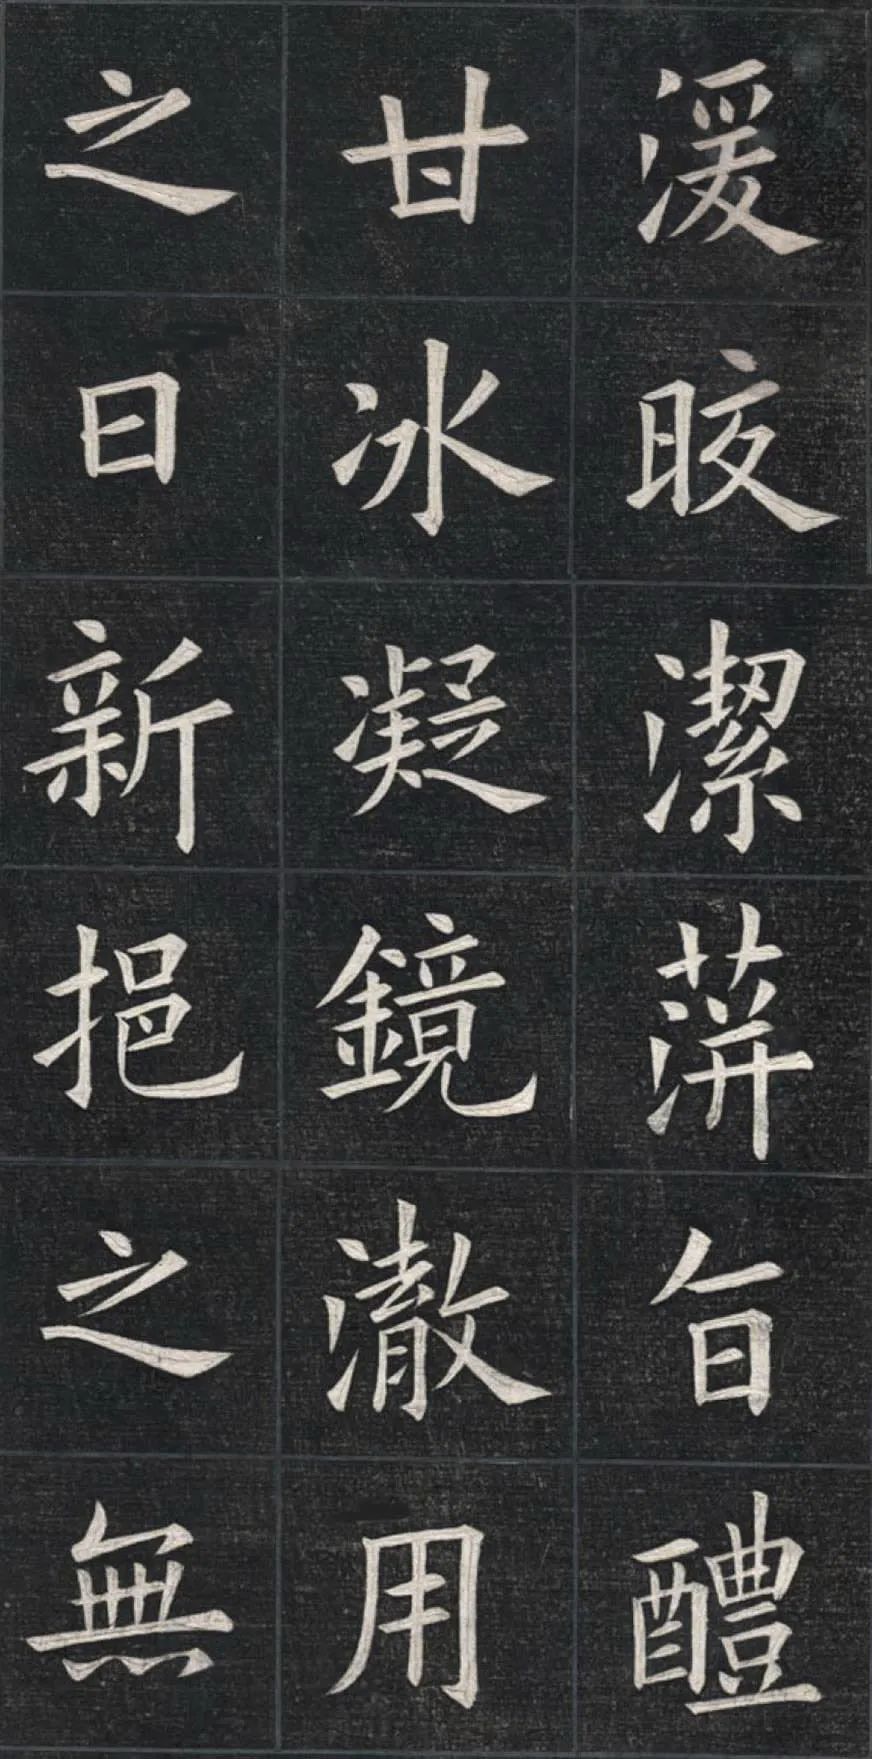 湲晈潔蓱旨醴
甘冰凝鏡澈用
之日新挹之無